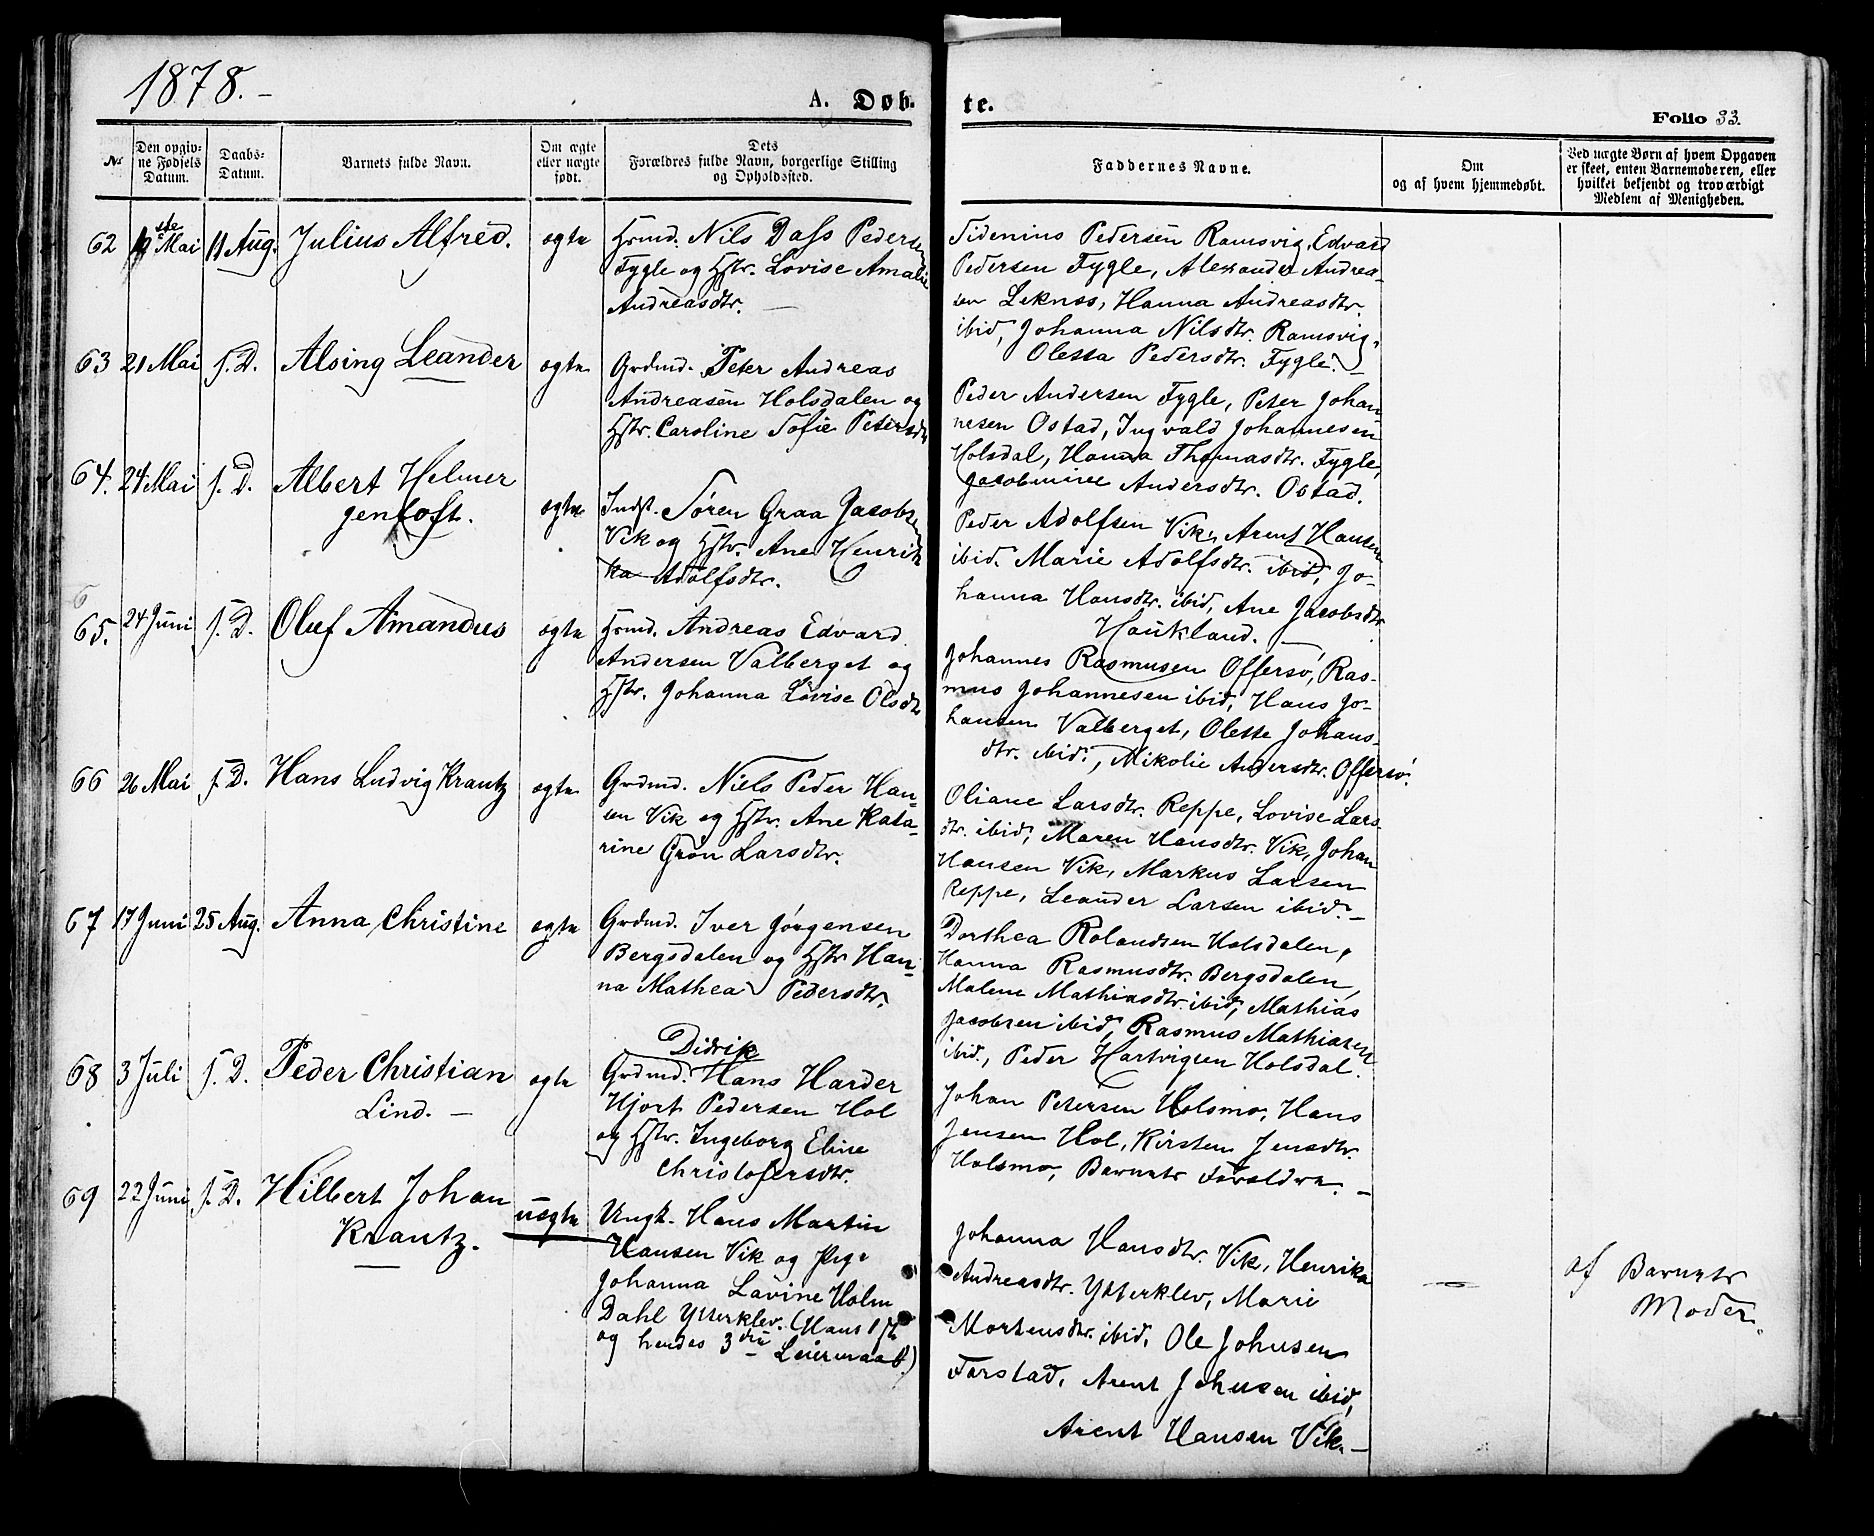 1878.-
A. Døb-
te.
Folio 33.
No
Den opgiv-
ne Fødsels
Datum.
Daabs-
Datum.
Barnets fulde Navn.
Om ægte
eller uægte
født.
Dets
Forældres fulde Navn, borgerlige Stilling
og Opholdssted.
Faddernes Navne.
Om
og af hvem hjemmedøbt.
Ved uægte Børn af hvem Opgaven
er skeet, enten Barnemoderen, eller
hvilket bekjendt og troværdigt
Medlem af Menigheden.
62 Mai 11 Aug. Julius Alfred. ægte
Hsmd. Nils Dass Pedersen
Fygle og Hstr. Lovise Amalie
Andreasdtr. —
Sidenius Pedersen Ramsvig, Edvard
Pedersen Fygle, Alexander Andrea-
sen Leknes, Hanna Andreasdtr.
ibid, Johanna Nilsdtr. Ramsvig,
Oletta Pedersdtr. Fygle. —
63 21 Mai s. D. Alsing Leander ægte
Grdmd. Peter Andreas
Andreasen Holsdalen og
Hstr. Caroline Sofie Petersdtr
Peder Andersen Fygle, Peter Johan-
nesen Ostad, Ingvald Johannesen
Holsdal, Hanna Thomasdtr. Fygle,
Jacobmine Andersdtr. Ostad.
64. 24 Mai s. D. Albert Helmer
gentoft. ægte
Indst. Søren Graa Jacobsen
Vik og Hstr. Ane Henrik
ka Adolfsdtr.
Peder Adolfsen Vik, Arent Hansen
ibid. Marie Adolfsdtr. ibid, Jo-
hanna Hansdtr. ibid, Ane Jacobsdtr
Haukland. —
65. 24 Juni s. D. Oluf Amandus ægte
Hsmd. Andreas Edvard
Andersen Valberget og
Hstr. Johanna Lovise Olsdtr
Johannes Rasmusen Offersø, Ras-
mus Johannesen ibid, Hans Jo-
hansen Valberget, Olette Johans-
dtr. ibid., Nikolie Andersdtr. Offersø.
66 26 Mai s. D. Hans Ludvig Krantz ægte
Grdmd. Niels Peder Han-
sen Vik og Hstr. Ane Kata-
rine Grøn Larsdtr.
Oliane Larsdtr. Reppe, Lovise Lars-
dtr. ibid, Maren Hansdtr. Vik, Johan
Hansen Vik, Markus Larsen
Reppe, Leander Larsen ibid. —
67 17 Juni 25 Aug. Anna Christine ægte
Grdmd. Iver Jørgensen
Bergsdalen og Hstr Han-
na Mathea Pedersdtr.
Dorthea Rolandsen Holsdalen,
Hanna Rasmusdtr. Bergsdalen,
Malene Mathiasdtr. ibid, Mathias
Jacobsen ibid, Rasmus Mathiasen
ibid., Peder Hartvigsen Holsdal.
68 3 Juli s. D. Peder Christian
Lind. — ægte
Didrik
Grdmd. Hans Harder
Hjort Pedersen Hol
og Hstr. Ingeborg Eline
Christofersdtr.
Johan Petersen Holsmo, Hans
Jensen Hol, Kirsten Jensdtr.
Holsmo, Barnets Forældre. —
69 22 Juni s. D. Hilbert Johan
Krantz. uægte
Ungk. Hans Martin
Hansen Vik og Pige
Johanna Lavine Holm
Dahl Ytterklev. (Hans 1ste
og hendes 3die Leiermaal.)
Johanna Hansdtr. Vik, Henrika
Andreasdtr. Ytterklev, Marie
Mortensdtr. ibid, Ole Johnsen
Farstad, Arent Johnsen ibid,
Arent Hansen Vik. —
—
af Barnets
Moder.